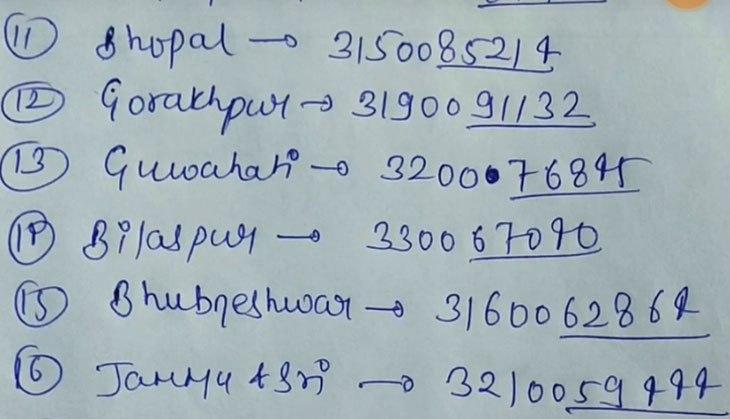 (11) Bhopal → 3150085214
(12) Gorakhpur → 3190091132
(13) Guwahati → 3200076845
(14) Bilaspur → 330067040
(15) Bhubneshwar → 3160062864
(16) Jammu & Sri → 3210059444